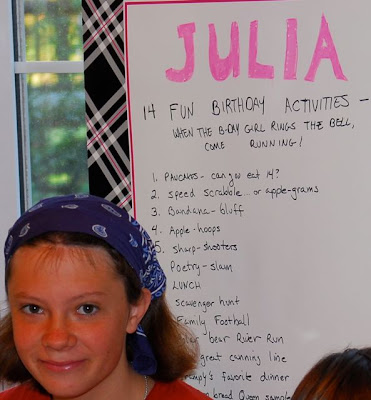 JULIA
14 FUN BIRTHDAY ACTIVITIES -
WHEN THE B-DAY GIRL RINGS THE BELL,
COME RUNNING!
1. PANCAKES - can you eat 14?
2. speed scrabble... or apple-grams
3. Bandana-bluff
4. Apple-hoops
5. Sharp-shooters
Poetry-slam
LUNCH
scavenger hunt
Family Football
bear River Run
great canning line
favorite dinner
bread Queen